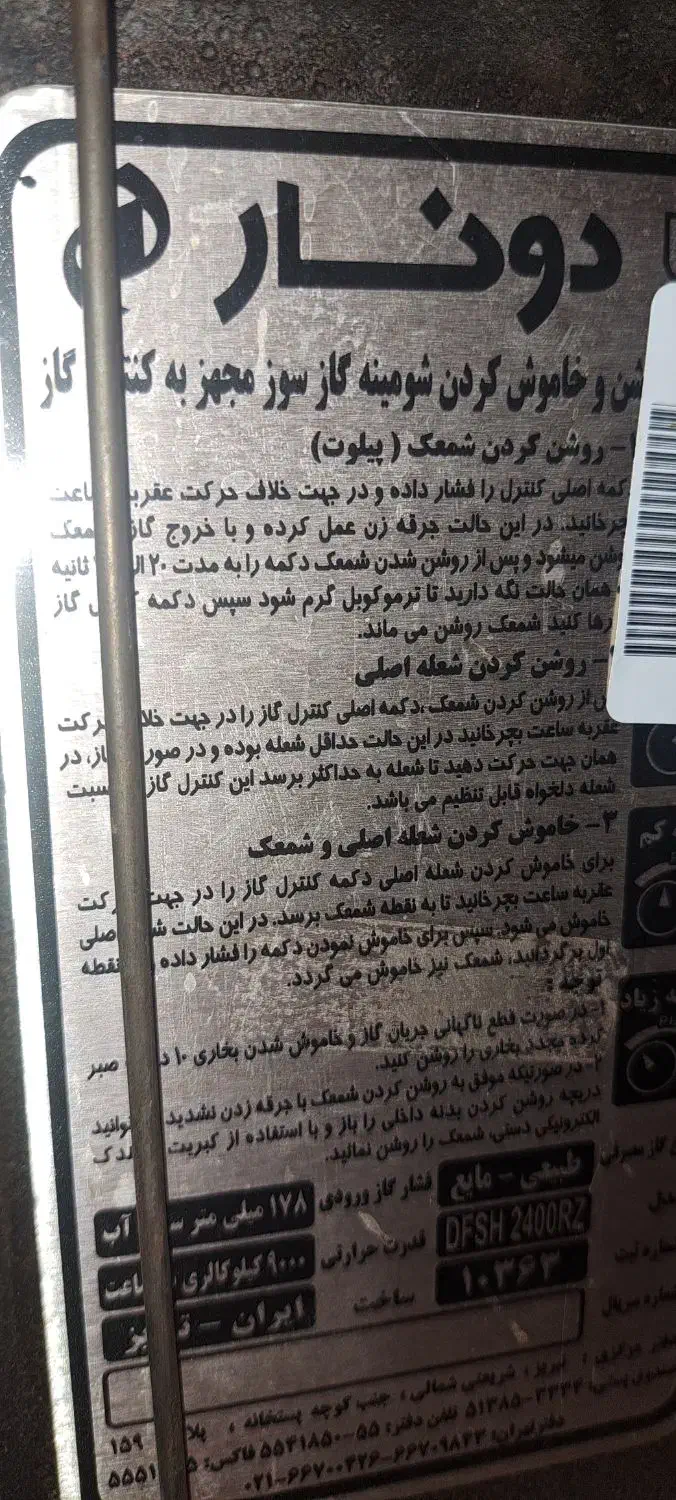 دونار
و خاموش کردن شومینه گاز سوز مجهز به گاز
- روشن کردن شمعک ( پیلوت)
اصلی کنترل را فشار داده و در جهت خلاف حرکت
در این حالت جرقه زن عمل کرده و با خروج
میشود و پس از روشن شدن شمعک دکمه را به مدت ۲۰ ثانیه
همان حالت نگه دارید تا ترموکوبل گرم شود سپس دکمه گاز
کنید شمعک روشن می ماند.
- روشن کردن شعله اصلی
از روشن کردن شمعک،دکمه اصلی کنترل گاز را در جهت
عقربه ساعت بچرخانید در این حالت حداقل شعله بوده و در در
همان جهت حرکت دهید تا شعله به حداکثر برسد این کنترل
شعله دلخواه قابل تنظیم می باشد.
۳- خاموش کردن شعله اصلی و شمعک
برای خاموش کردن شعله اصلی دکمه کنترل گاز را در
عقربه ساعت بچرخانید تا به نقطه شمعک برسد. در این حالت
خاموش می شود. سپس برای خاموش نمودن دکمه را فشار داده نقطه
اول برگردانید، شمعک نیز خاموش می گردد.
توجه :
۱- در صورت قطع ناگهانی جریان گاز و خاموش شدن بخاری ۱۰ صبر
کرده مجدد بخاری را روشن کنید.
۲- در صورتیکه موفق به روشن کردن شمعک با جرقه زدن نشدید
دریچه روشن کردن بدنه داخلی را باز و با استفاده از کبریت
الکترونیکی دستی، شمعک را روشن نمائید.
کم
زیاد
گاز مصرفی طبیعی - مایع فشار گاز ورودی ۱۷۸ میلی متر آب
DFSH 2400RZ قدرت حرارتی ۹۰۰۰ کیلوکالری
۱۰۳۶۳ ساخت ایران -
تبریز ، شریعتی شمالی ، جنب کوچه پستخانه ، ۱۵۹
۵۱۳۸۵-۳۳۳۴ تلفن دفتر: ۵۵-۵۵۴۱۸۵۰ فاکس:
دفترتهران: ۶۶۷۰۹۸۳۳-۰۲۱-۶۶۷۰۰۳۲۶